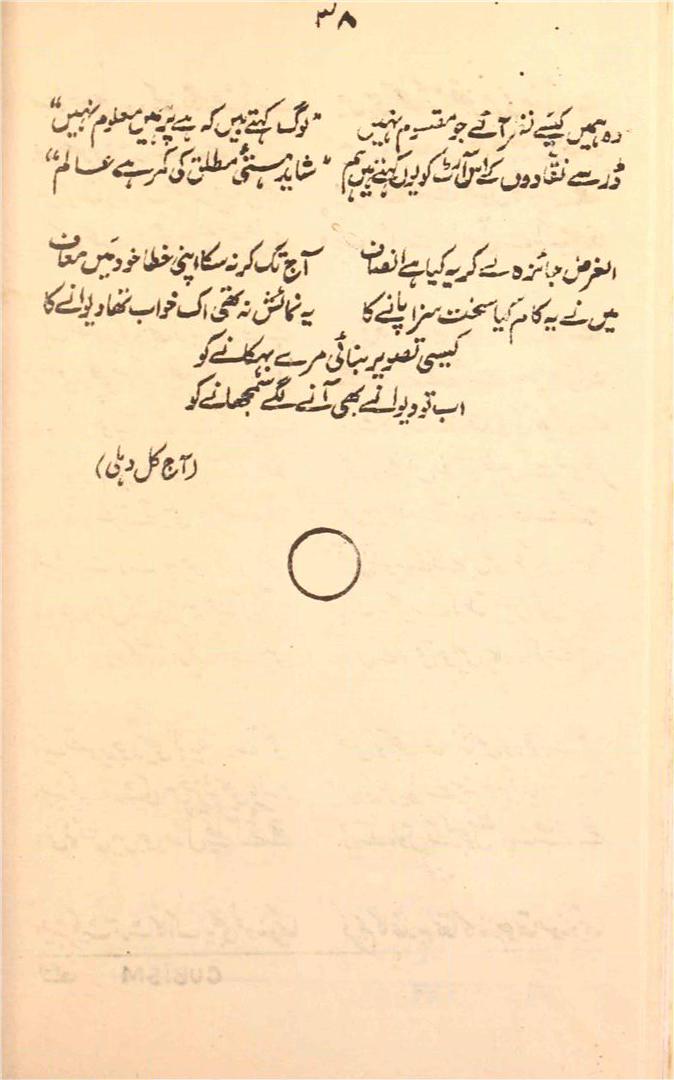 ۳۸
وہ ہمیں کیسے نظر آئے جو مقسوم نہیں "لوگ کہتے ہیں کہ ہے پر ہمیں معلوم نہیں"
ڈر سے نقادوں کے اس آرٹ کو یوں کہتے ہیں ہم "شاید ہستیٔ مطلق کی کمر ہے عالم"
الغرض جائزہ لے کر یہ کیا ہے انصاف آج تک کر نہ سکا اپنی خطا خود میں معاف
میں نے یہ کام کیا سخت سزا پانے کا یہ نمائش نہ تھی اک خواب تھا دیوانے کا
کیسی تصویر بنائی مرے بہکانے کو
اب تو دیوانے بھی آنے لگے سمجھانے کو
(آج کل دہلی)